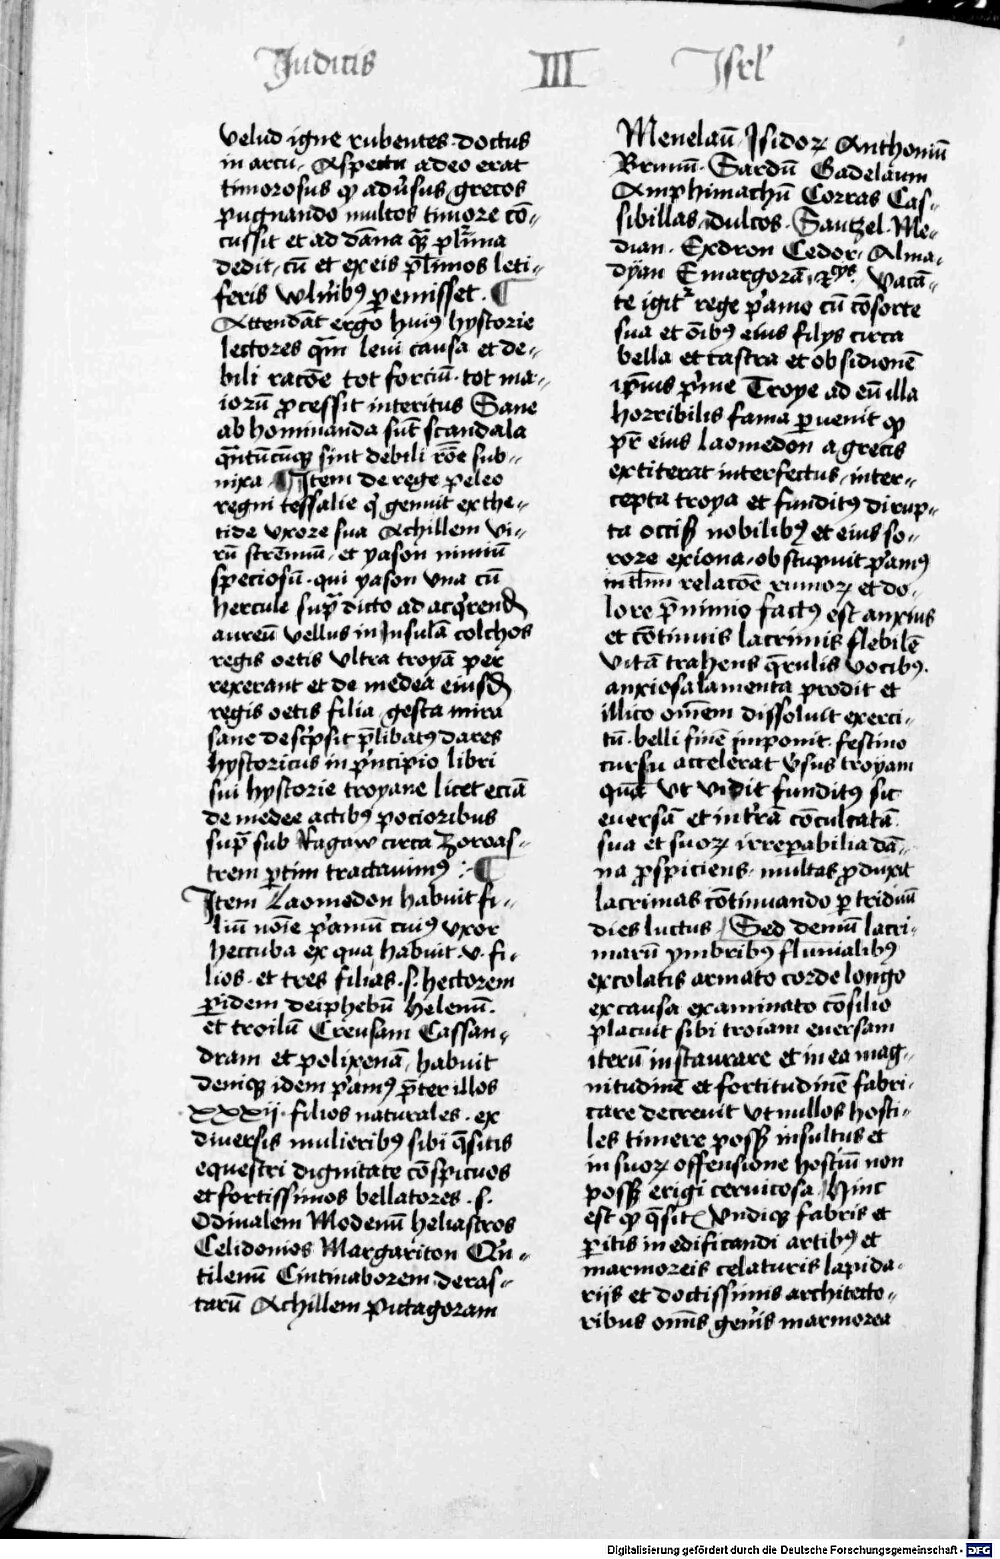 Judicis III Isrl̄
velud igne rubentes doctus
in arcu. Aspectu adeo erat
timorosus ꝙ adūsus grecos
pugnando multos timore cō-
cussit et ad dāna qꝫ plr̄ima
dedit, cū et ex eis pl̄imos leti-
feris wln̄ibꝰ ꝑemisset. ¶
Attendāt ergo huiꝰ hystorie
lectores qm̄ leui causa et de-
bili racōe tot forciū tot ma-
iorū ꝓcessit interitus Sane
abhominanda sūt scandala
qn̄tūcūqꝫ sint debili rōe sub-
nixa ¶ Item de rege peleo
regni tessalie qͥ genuit ex the-
tide vxore sua Achillem vi-
rū strēnuū, et yason nimiū
speciosū qui yason vna cū
hercule sup̄ dicto ad acq̄rend̄
aureū vellus in Insulā colchos
regis oetis vltra troyā per
rexerant et de medea eiusd̄
regis oetis filia gesta mira
sane desc̄psit p̄libatꝰ dares
hystoricus in p̄ncipio libri
sui hystorie troyane licet eciā
de medee actibꝰ pocioribus
sup̄ sub Ragaw circa Zoroas-
trem ꝑtim tractauimꝰ :¶
Item Laomedon habuit fi-
liū noīe p̄amū cuiꝰ vxor
heccuba ex qua habuit .v. fi-
lios et tres filias .s. hectorem
ꝑidem deiphebū helenū.
et troilū Creusam Cassan-
dram et polixenā, habuit
deniqꝫ idem p̄amꝰ p̄ter illos
xxxij filios naturales ex
diuersis mulieribꝰ sibi q̄sitis
equestri dignitate cōspicuos
et fortissimos bellatores .s.
Odinalem Modenū heliastros
Celidonios Margariton Qūn-
tilenū Cintinaborem deras-
tarū Achillem pictagoram
Menelaū Isidoꝝ Anthoniū
Brunū Sardū Gadelaum
Amphimachū Corras Cas-
sibillas dulcos Sautzel Me-
dian Exdron Cedor Alma-
dÿan Emargorā Vacā-
te igitͬ rege p̄amo cū cōsorte
sua et oībꝰ eius filijs circa
bella et castra et obsidionē
ip̄ius p̄me Troye ad eū illa
horribilis fama ꝑuenit ꝙ
pr̄ eius Laomedon a grecis
extiterat interfectus, inter-
cepta troya et funditꝰ dirup-
ta occis̄ nobilibꝰ et eius so-
rore exiona, obstupuit p̄amꝰ
relacōe rumoꝝ et do-
lore p̄nimio factꝰ est anxius
et cōtinuis lacrimis flebilē
vitā trahens q̄rulis vocibꝰ.
anxiosa lamenta prodit et
illico om̄em dissoluit exerci-
tū belli finē imponit. festino
cursu accelerat ūsus troyam
quā vt vidit funditꝰ sic
euersā et in tr̄ā cōculcatā
sua et suoꝝ irreꝑabilia dā-
na ꝓspiciens multas ꝓduxit
lacrimas cōtinuando ꝑ triduū
dies luctus Sed demū lacri-
marū ymbribꝰ fluuialibꝰ
excolatis armato corde longo
ex causa examinato cōsilio
placuit sibi troiam euersam
iterū instaurare et in ea mag-
nitudinē et fortitudinē fabri-
care decreuit vt nullos hosti-
les timere poss̄ insultus et
in suoꝝ offensione hostiū non
poss̄ erigi ceruicosa Hinc
est ꝙ q̄sit̄ vndiqꝫ fabris et
ꝑitis in edificandi artibꝰ et
marmoreis celaturis lapida-
rijs et doctissimis architecto-
ribus om̄s gen̄is marmorea
Digitalisierung gefördert durch die Deutsche Forschungsgemeinschaft - DFG